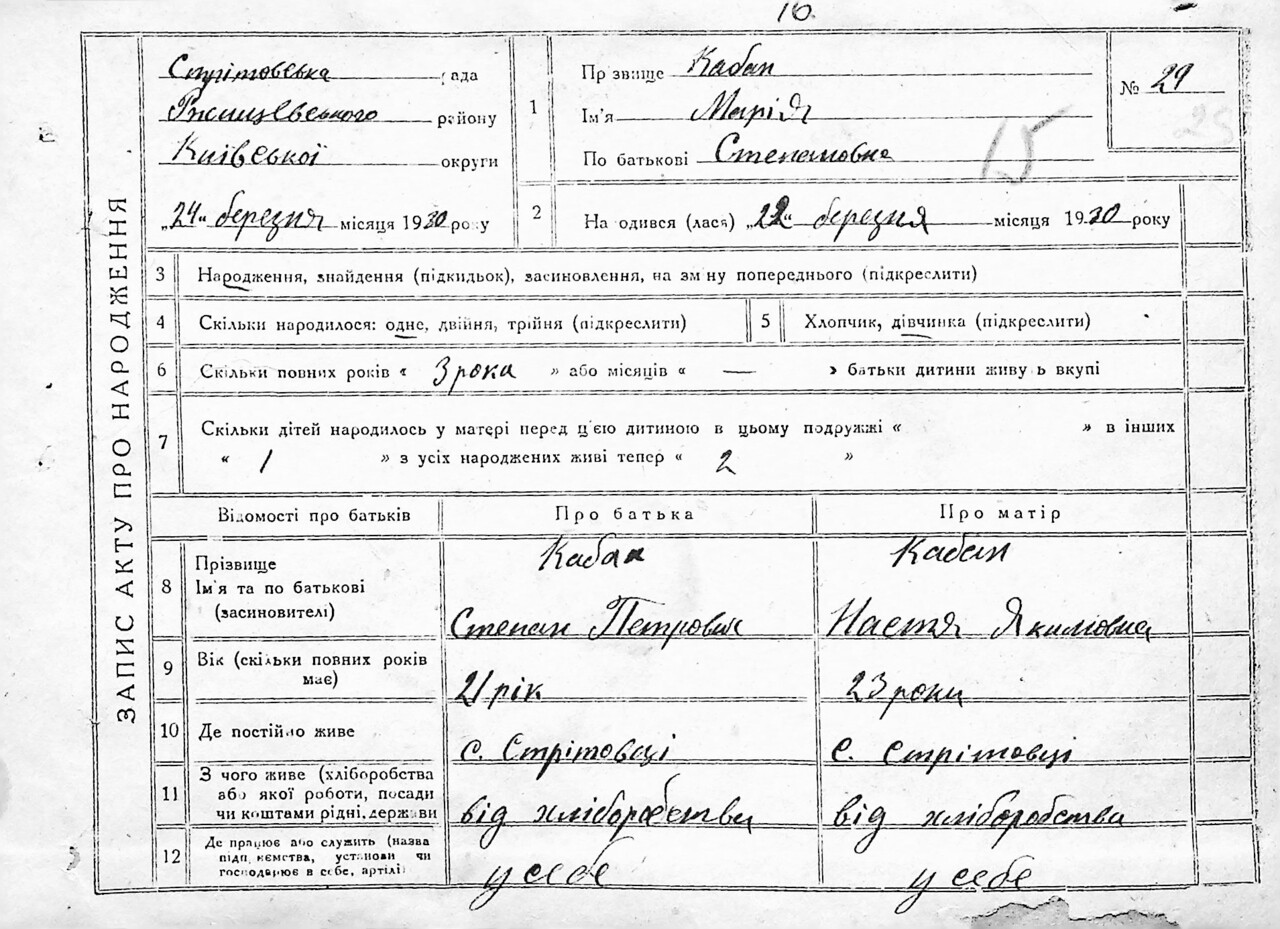 16.
ЗАПИС АКТУ ПРО НАРОДЖЕННЯ
Стрітовська рада
Ржищевського району
Київської округи
„24" березня місяця 1930 року
1 Прізвище Кабан
Ім'я Марія
По батькові Степановна
№ 29
15
25
2 Народився (лася) „22" березня місяця 1930 року
3 Народження, знайдення (підкидьок), засиновлення, на зміну попереднього (підкреслити)
4 Скільки народилося: одне, двійня, трійня (підкреслити) 5 Хлопчик, дівчинка (підкреслити)
6 Скільки повних років « 3 рока » або місяців « — » батьки дитини живуть вкупі
7 Скільки дітей народилось у матері перед ц'єю дитиною в цьому подружжі « » в інших
« 1 » з усіх народжених живі тепер « 2 »
Відомості про батьків Про батька Про матір
8 Прізвище Кабан Кабан
Ім'я та по батькові
(засиновителі) Степан Петрович Настя Якимовна
9 Вік (скільки повних років
має) 21 рік 23 роки
10 Де постійно живе с. Стрітовці с. Стрітовці
11 З чого живе (хліборобства
або якої роботи, посади
чи коштами рідні, держави від хліборобства від хліборобства
12 Де працює або служить (назва
підприємства, установи чи
господарює в себе, артілі) у себе у себе